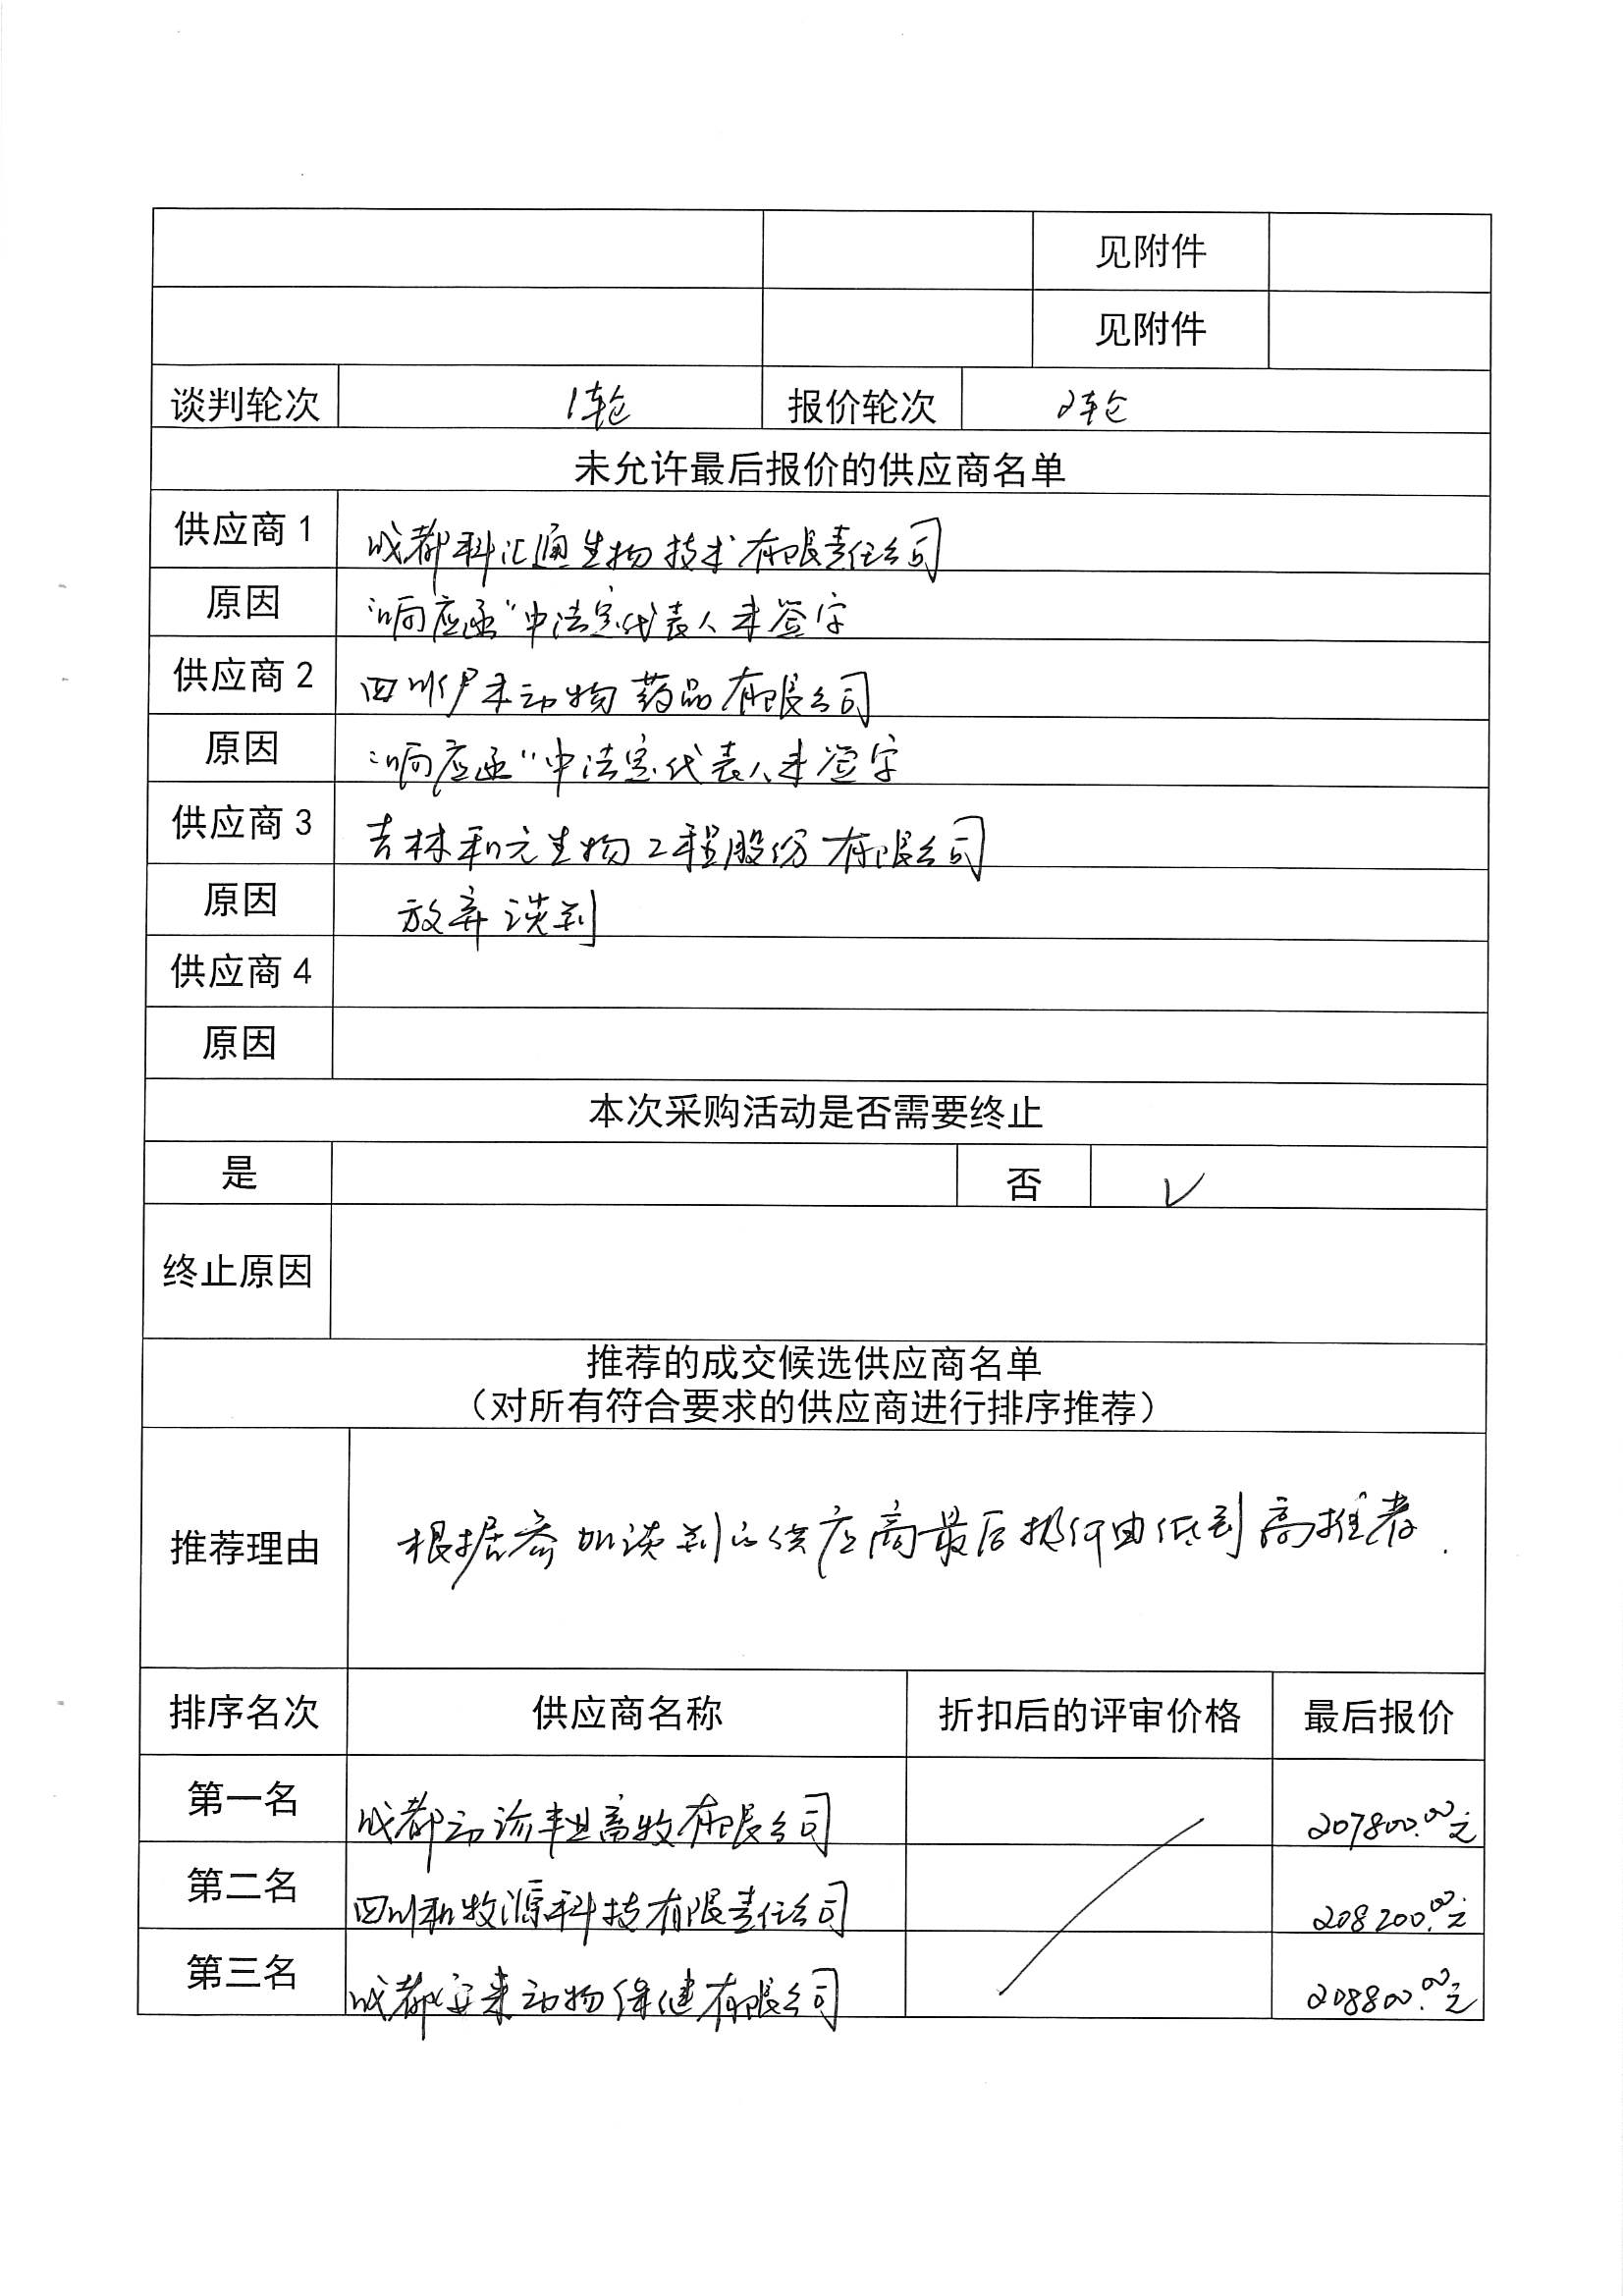 见附件
见附件
谈判轮次 1轮 报价轮次 2轮
未允许最后报价的供应商名单
供应商1 成都科汇通生物技术有限责任公司
原因 "响应函"中法定代表人未签字
供应商2 四川伊禾动物药品有限公司
原因 "响应函"中法定代表人未签字
供应商3 吉林和元生物工程股份有限公司
原因 放弃谈判
供应商4
原因
本次采购活动是否需要终止
是 否 √
终止原因
推荐的成交候选供应商名单
（对所有符合要求的供应商进行排序推荐）
推荐理由 根据参加谈判的供应商最后报价由低到高推荐.
排序名次 供应商名称 折扣后的评审价格 最后报价
第一名 成都动诊丰业畜牧有限公司 207800.00元
第二名 四川和牧源科技有限责任公司 208200.00元
第三名 成都安来动物保健有限公司 208800.00元